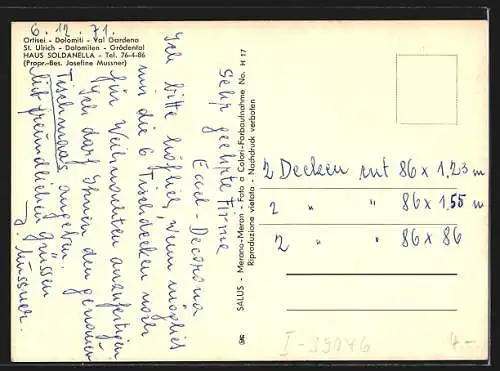 6.12.71.
Ortisei - Dolomiti - Val Gardena
St. Ulrich - Dolomiten - Grödental
HAUS SOLDANELLA - Tel. 76-4-86
(Propr.-Bes. Josefine Mussner)
Sehr geehrte Firma
Ewel-Decorona
Ich bitte höflich, wenn möglich
mir die 6 Tischdecken noch
für Weihnachten anzufertigen
Ich darf Ihnen den genauen
Tischmaas angeben.
Mit freundlichen Grüssen
J. Mussner.
SALUS - Merano-Meran - Foto a Colori-Farbaufnahme No. H 17
Riproduzione vietata - Nachdruck verboten
2 Decken rut 86 x 1,23 m
2 " " 86 x 1,55 m
2 " " 86 x 86
I-39046
4.-